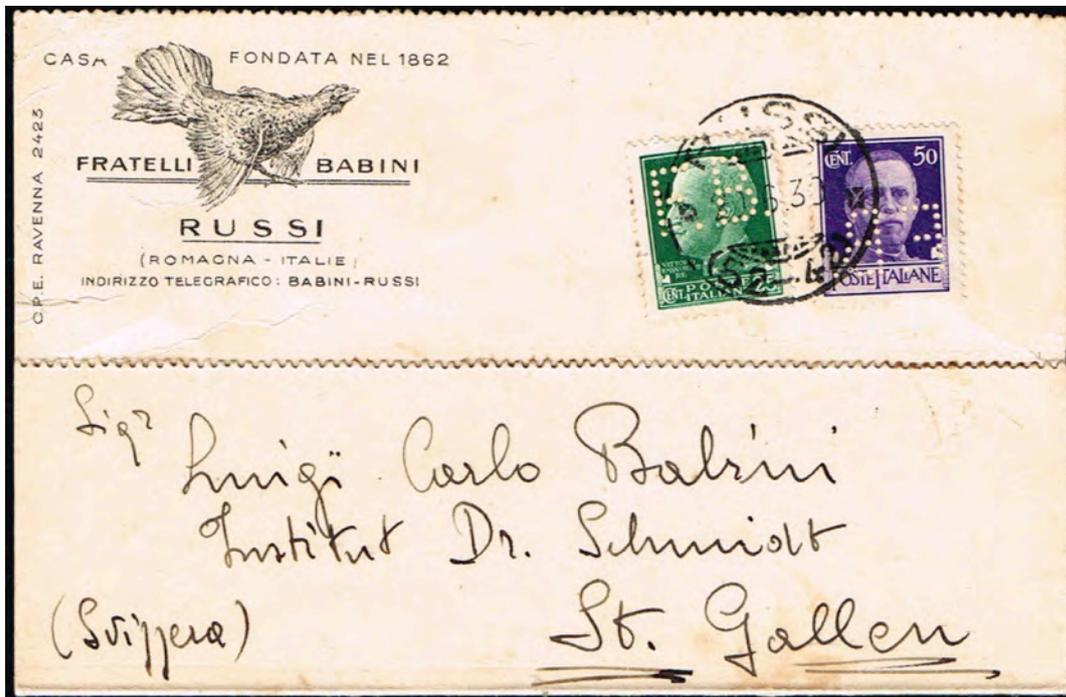 CASA FONDATA NEL 1862
FRATELLI BABINI
RUSSI
(ROMAGNA - ITALIE)
INDIRIZZO TELEGRAFICO: BABINI-RUSSI
C.P.E. RAVENNA 2423
RUSSI
POSTE ITALIANE
CENT. 50
POSTE ITALIANE
Sigr
Luigi Carlo Babini
Institut Dr. Schmidt
(Svizzera) St. Gallen